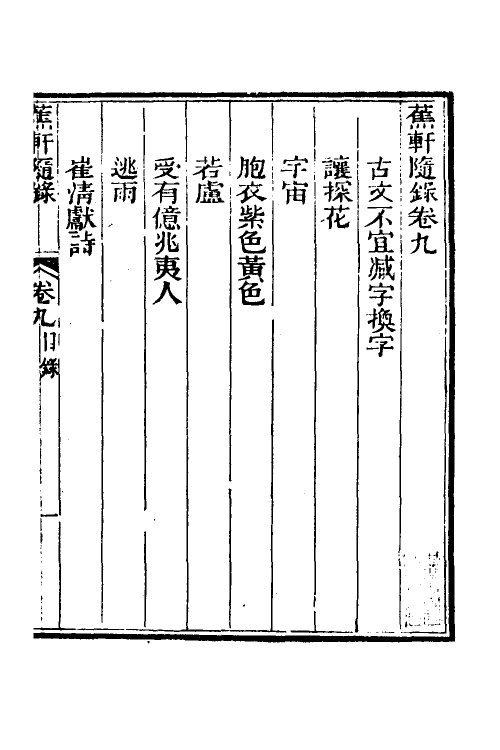 蕉軒隨錄卷九
古文不宜減字換字
讓探花
字宙
胞衣紫色黃色
若盧
受有億兆夷人
逃雨
崔清獻詩
蕉軒隨錄
卷九目錄
一